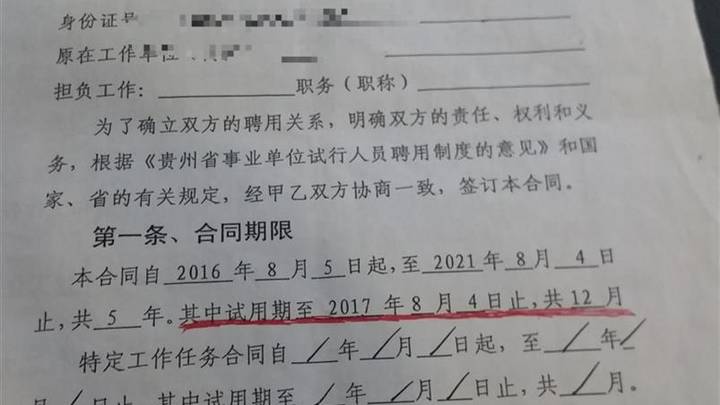 身份证号
原在工作单位
担负工作：　　　　　职务（职称）
为了确立双方的聘用关系，明确双方的责任、权利和义
务，根据《贵州省事业单位试行人员聘用制度的意见》和国
家、省的有关规定，经甲乙双方协商一致，签订本合同。
第一条、合同期限
本合同自 2016 年 8 月 5 日起，至 2021 年 8 月 4 日
止，共 5 年。其中试用期至 2017 年 8 月 4 日止，共 12 月
特定工作任务合同自 / 年 / 月 / 日起，至 / 年 /
月 / 日止，其中试用期至 / 年 / 月 / 日止，共 / 月。